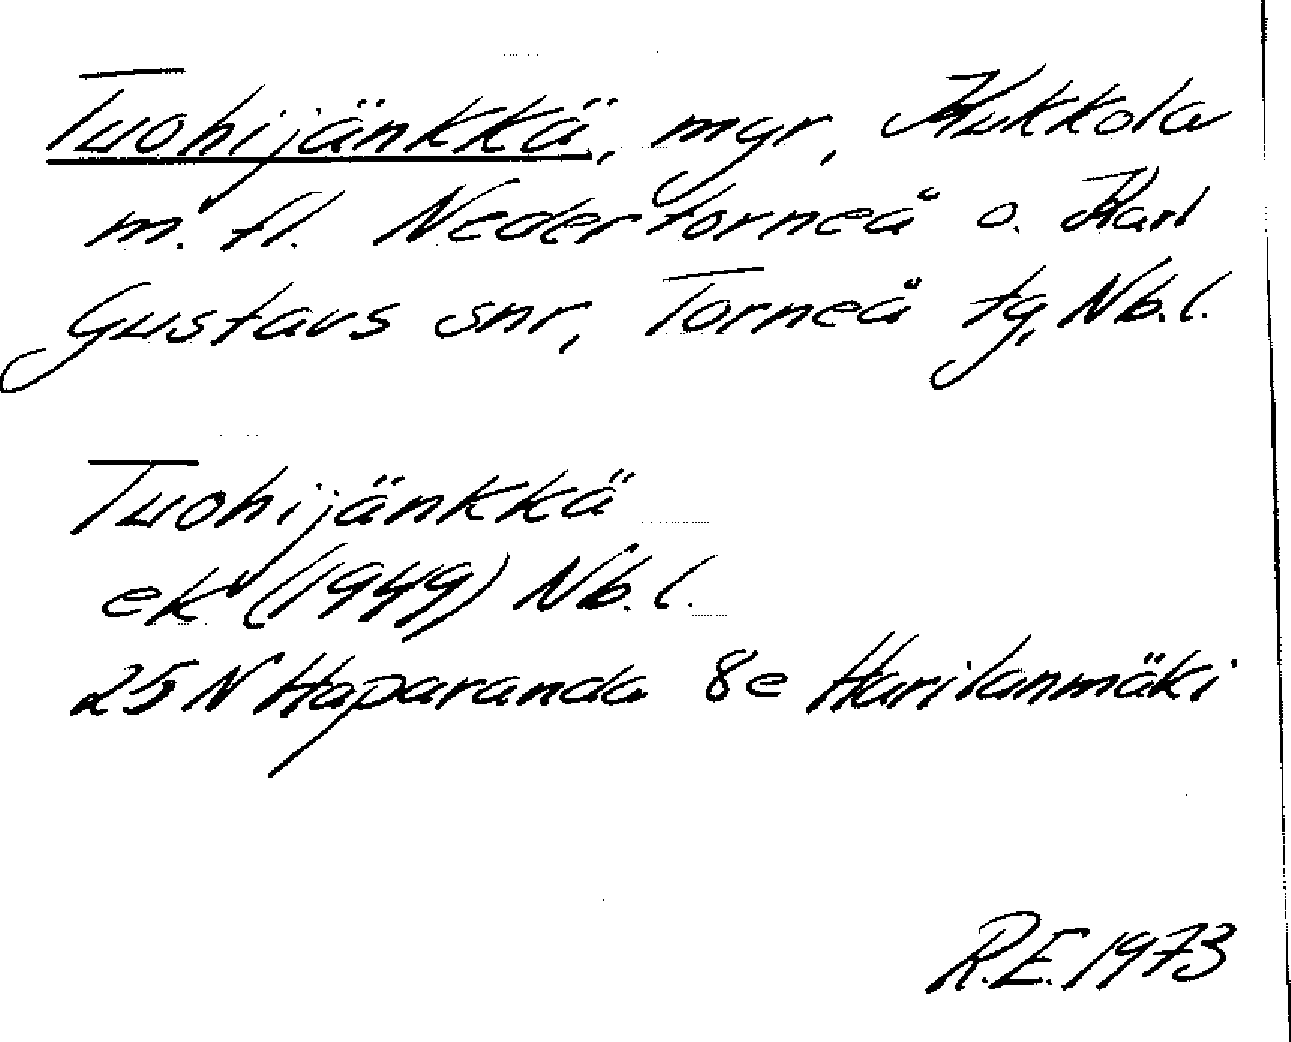 Tuohijänkkä, myr, Kukkola
m. fl. Nedertorneå o. Karl
Gustavs snr, Torneå tg, Nb.l.
Tuohijänkkä
ek (1949) Nb.l.
25 N Haparanda 8e Harilanmäki
R.E. 1973